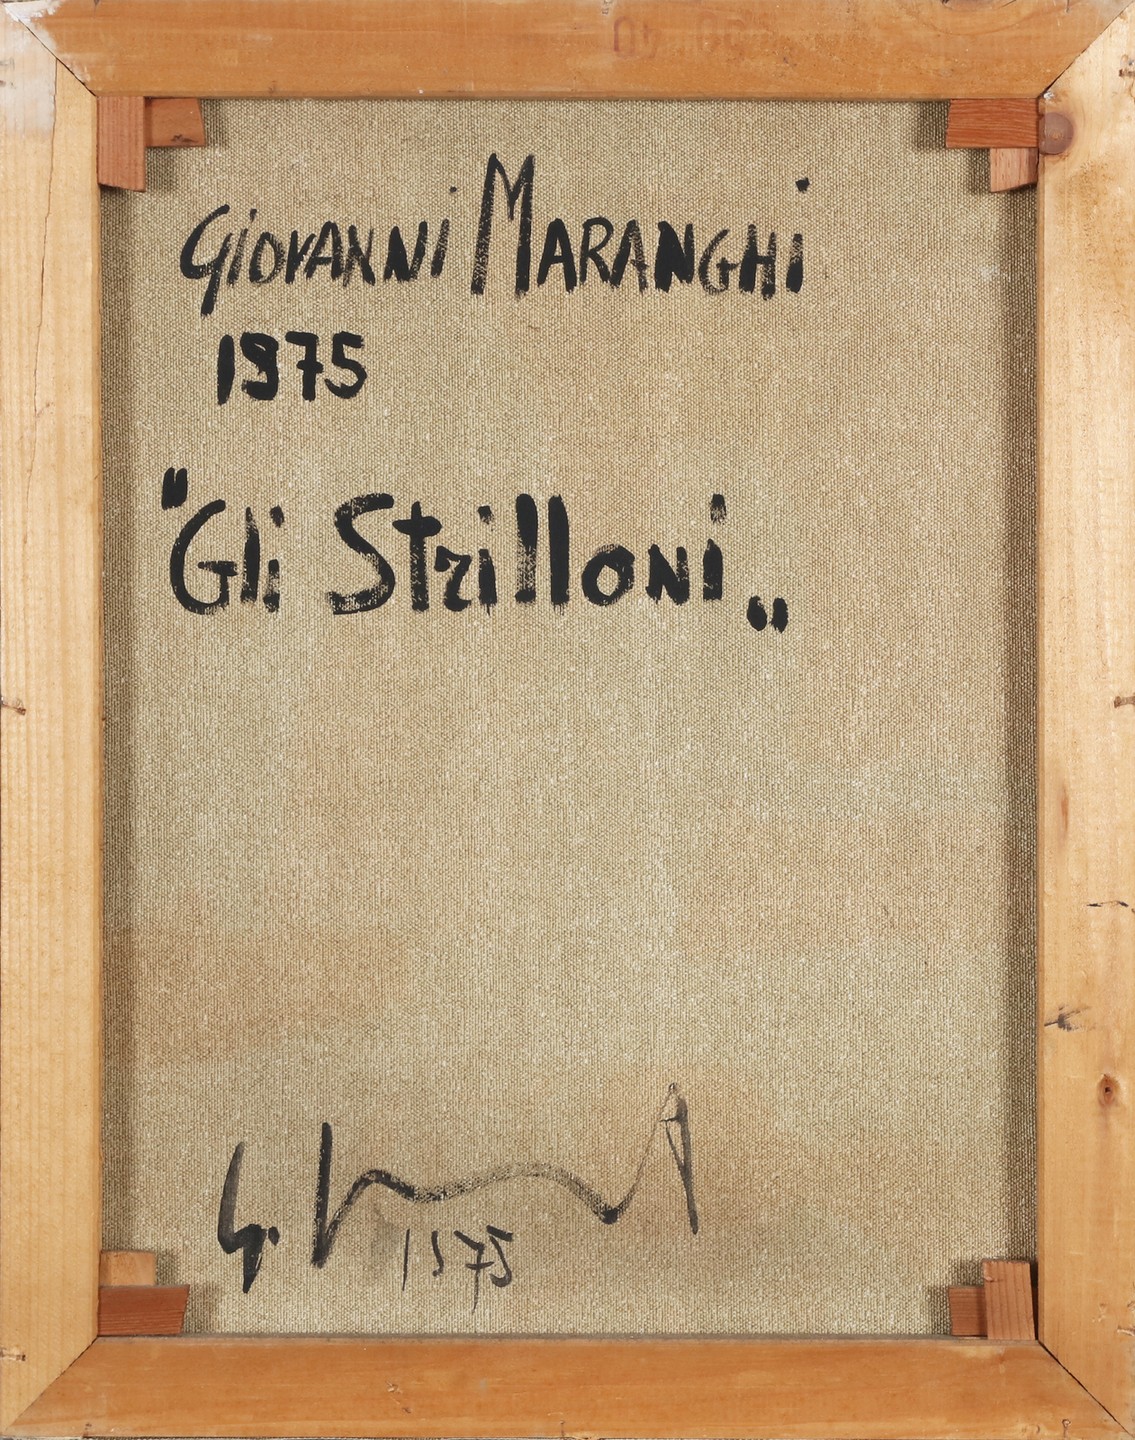 Giovanni Maranghi
1975
"Gli Strilloni"
G.
1975